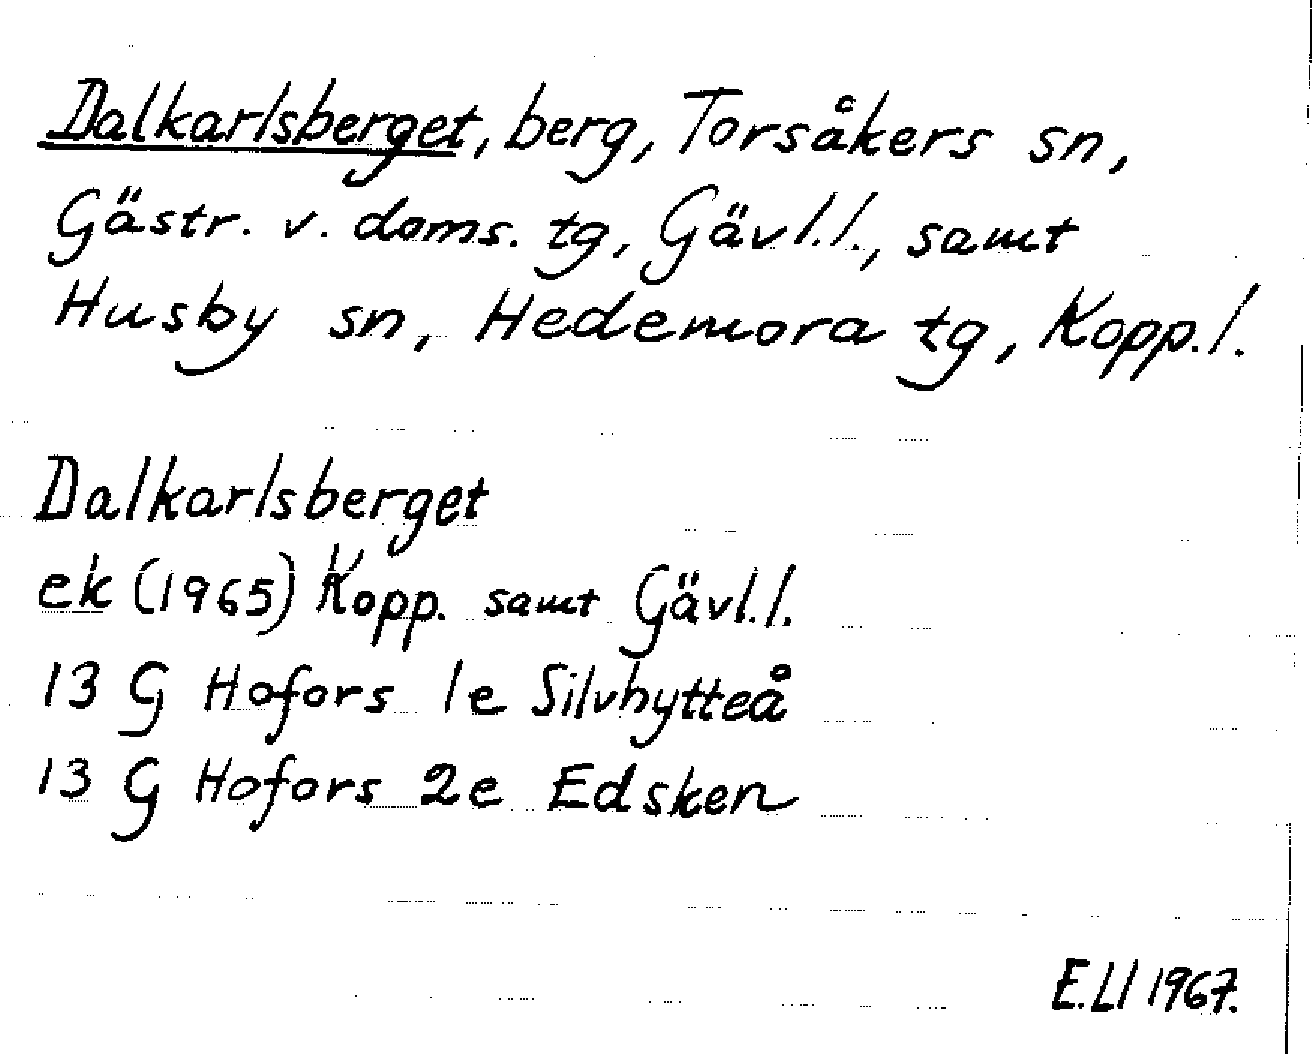 Dalkarlsberget, berg, Torsåkers sn,
Gästr. v. doms. tg, Gävl.l., samt
Husby sn, Hedemora tg, Kopp.l.
Dalkarlsberget
ek (1965) Kopp. samt Gävl.l.
13 G Hofors 1e Silvhytteå
13 G Hofors 2e Edsken
E.Ll 1967.